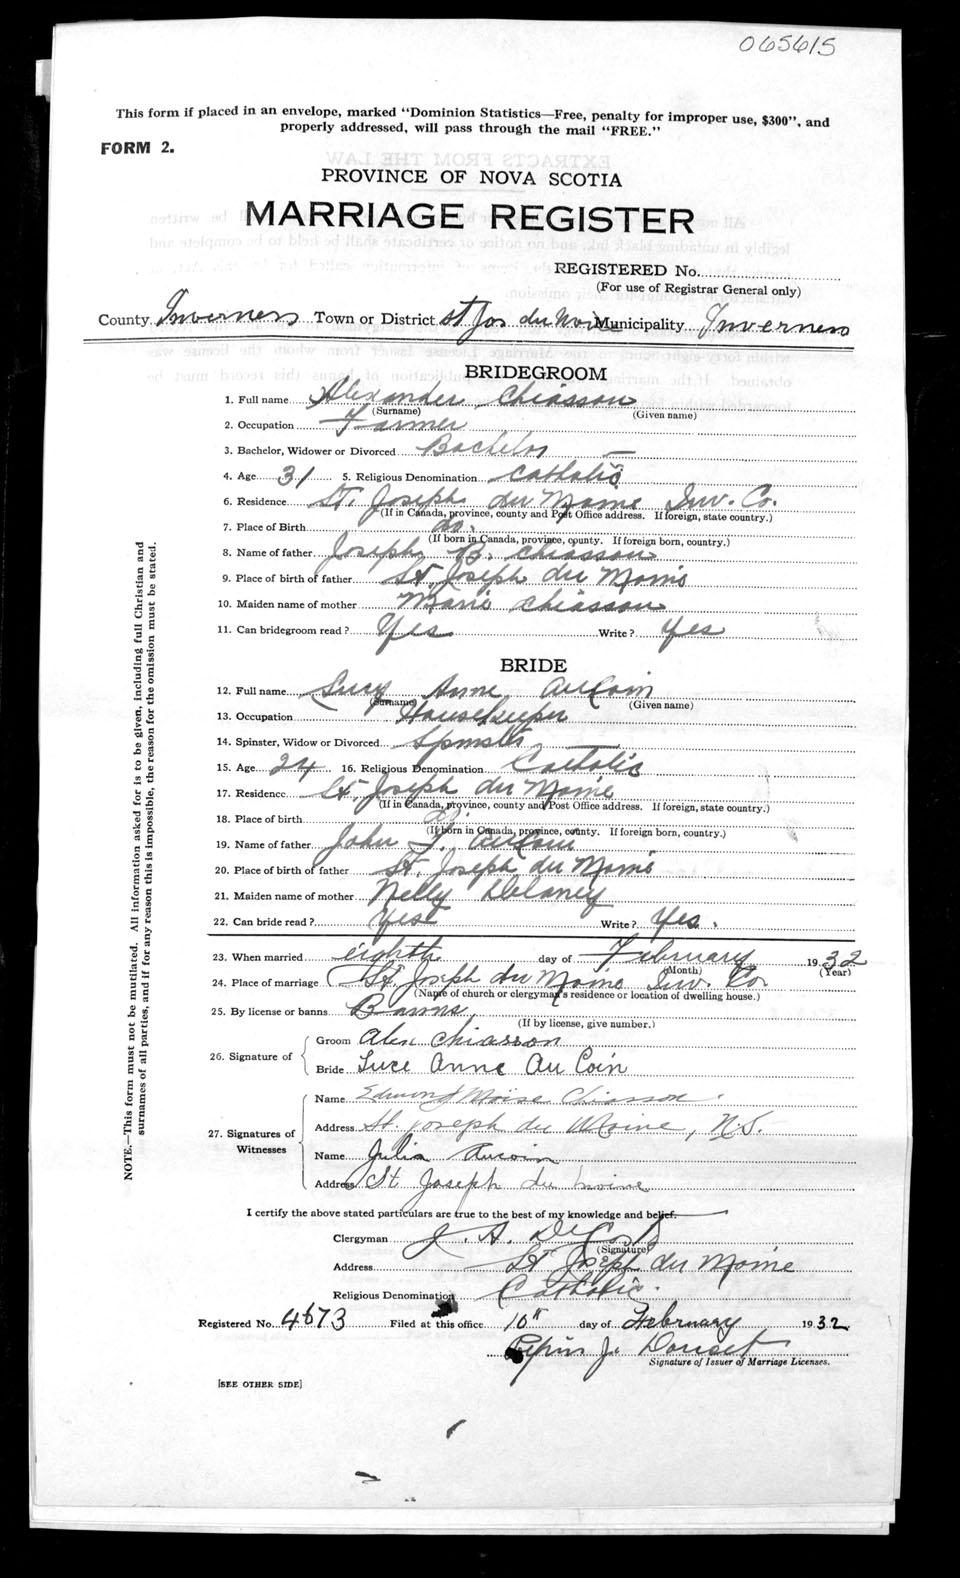 065615
This form if placed in an envelope, marked "Dominion Statistics—Free, penalty for improper use, $300", and
properly addressed, will pass through the mail "FREE."
FORM 2.
PROVINCE OF NOVA SCOTIA
MARRIAGE REGISTER
REGISTERED No.
(For use of Registrar General only)
County Inverness Town or District St Jos du Moine Municipality Inverness
BRIDEGROOM
1. Full name Alexander Chiasson
(Surname) (Given name)
2. Occupation Farmer
3. Bachelor, Widower or Divorced Bachelor
4. Age 31 5. Religious Denomination Catholic
6. Residence St. Joseph du Moine Inv. Co.
(If in Canada, province, county and Post Office address. If foreign, state country.)
7. Place of Birth do.
(If born in Canada, province, county. If foreign born, country.)
8. Name of father Joseph B. Chiasson
9. Place of birth of father St. Joseph du Moine
10. Maiden name of mother Marie Chiasson
11. Can bridegroom read? Yes Write? Yes
BRIDE
12. Full name Lucy Anne AuCoin
(Surname) (Given name)
13. Occupation Housekeeper
14. Spinster, Widow or Divorced Spinster
15. Age 24 16. Religious Denomination Catholic
17. Residence St. Joseph du Moine
(If in Canada, province, county and Post Office address. If foreign, state country.)
18. Place of birth do.
(If born in Canada, province, county. If foreign born, country.)
19. Name of father John AuCoin
20. Place of birth of father St. Joseph du Moine
21. Maiden name of mother Nelly Delaney
22. Can bride read? Yes Write? Yes.
23. When married eighth day of February 1932
(Month) (Year)
24. Place of marriage St. Joseph du Moine Inv. Co.
(Name of church or clergyman's residence or location of dwelling house.)
25. By license or banns Banns
(If by license, give number.)
26. Signature of
Groom Alex Chiasson
Bride Luce Anne Au Coin
27. Signatures of Witnesses
Name Edmond Moïse Chiasson
Address St. Joseph du Moine, N.S.
Name Julia Aucoin
Address St Joseph du Moine
I certify the above stated particulars are true to the best of my knowledge and belief.
Clergyman J. A. DeCoste
(Signature)
Address St Joseph du Moine
Religious Denomination Catholic.
Registered No. 4673 Filed at this office 10th day of February 1932
Pepin J. Doucet
Signature of Issuer of Marriage Licenses.
[SEE OTHER SIDE]
NOTE.—This form must not be mutilated. All information asked for is to be given, including full Christian and
surnames of all parties, and if for any reason this is impossible, the reason for the omission must be stated.